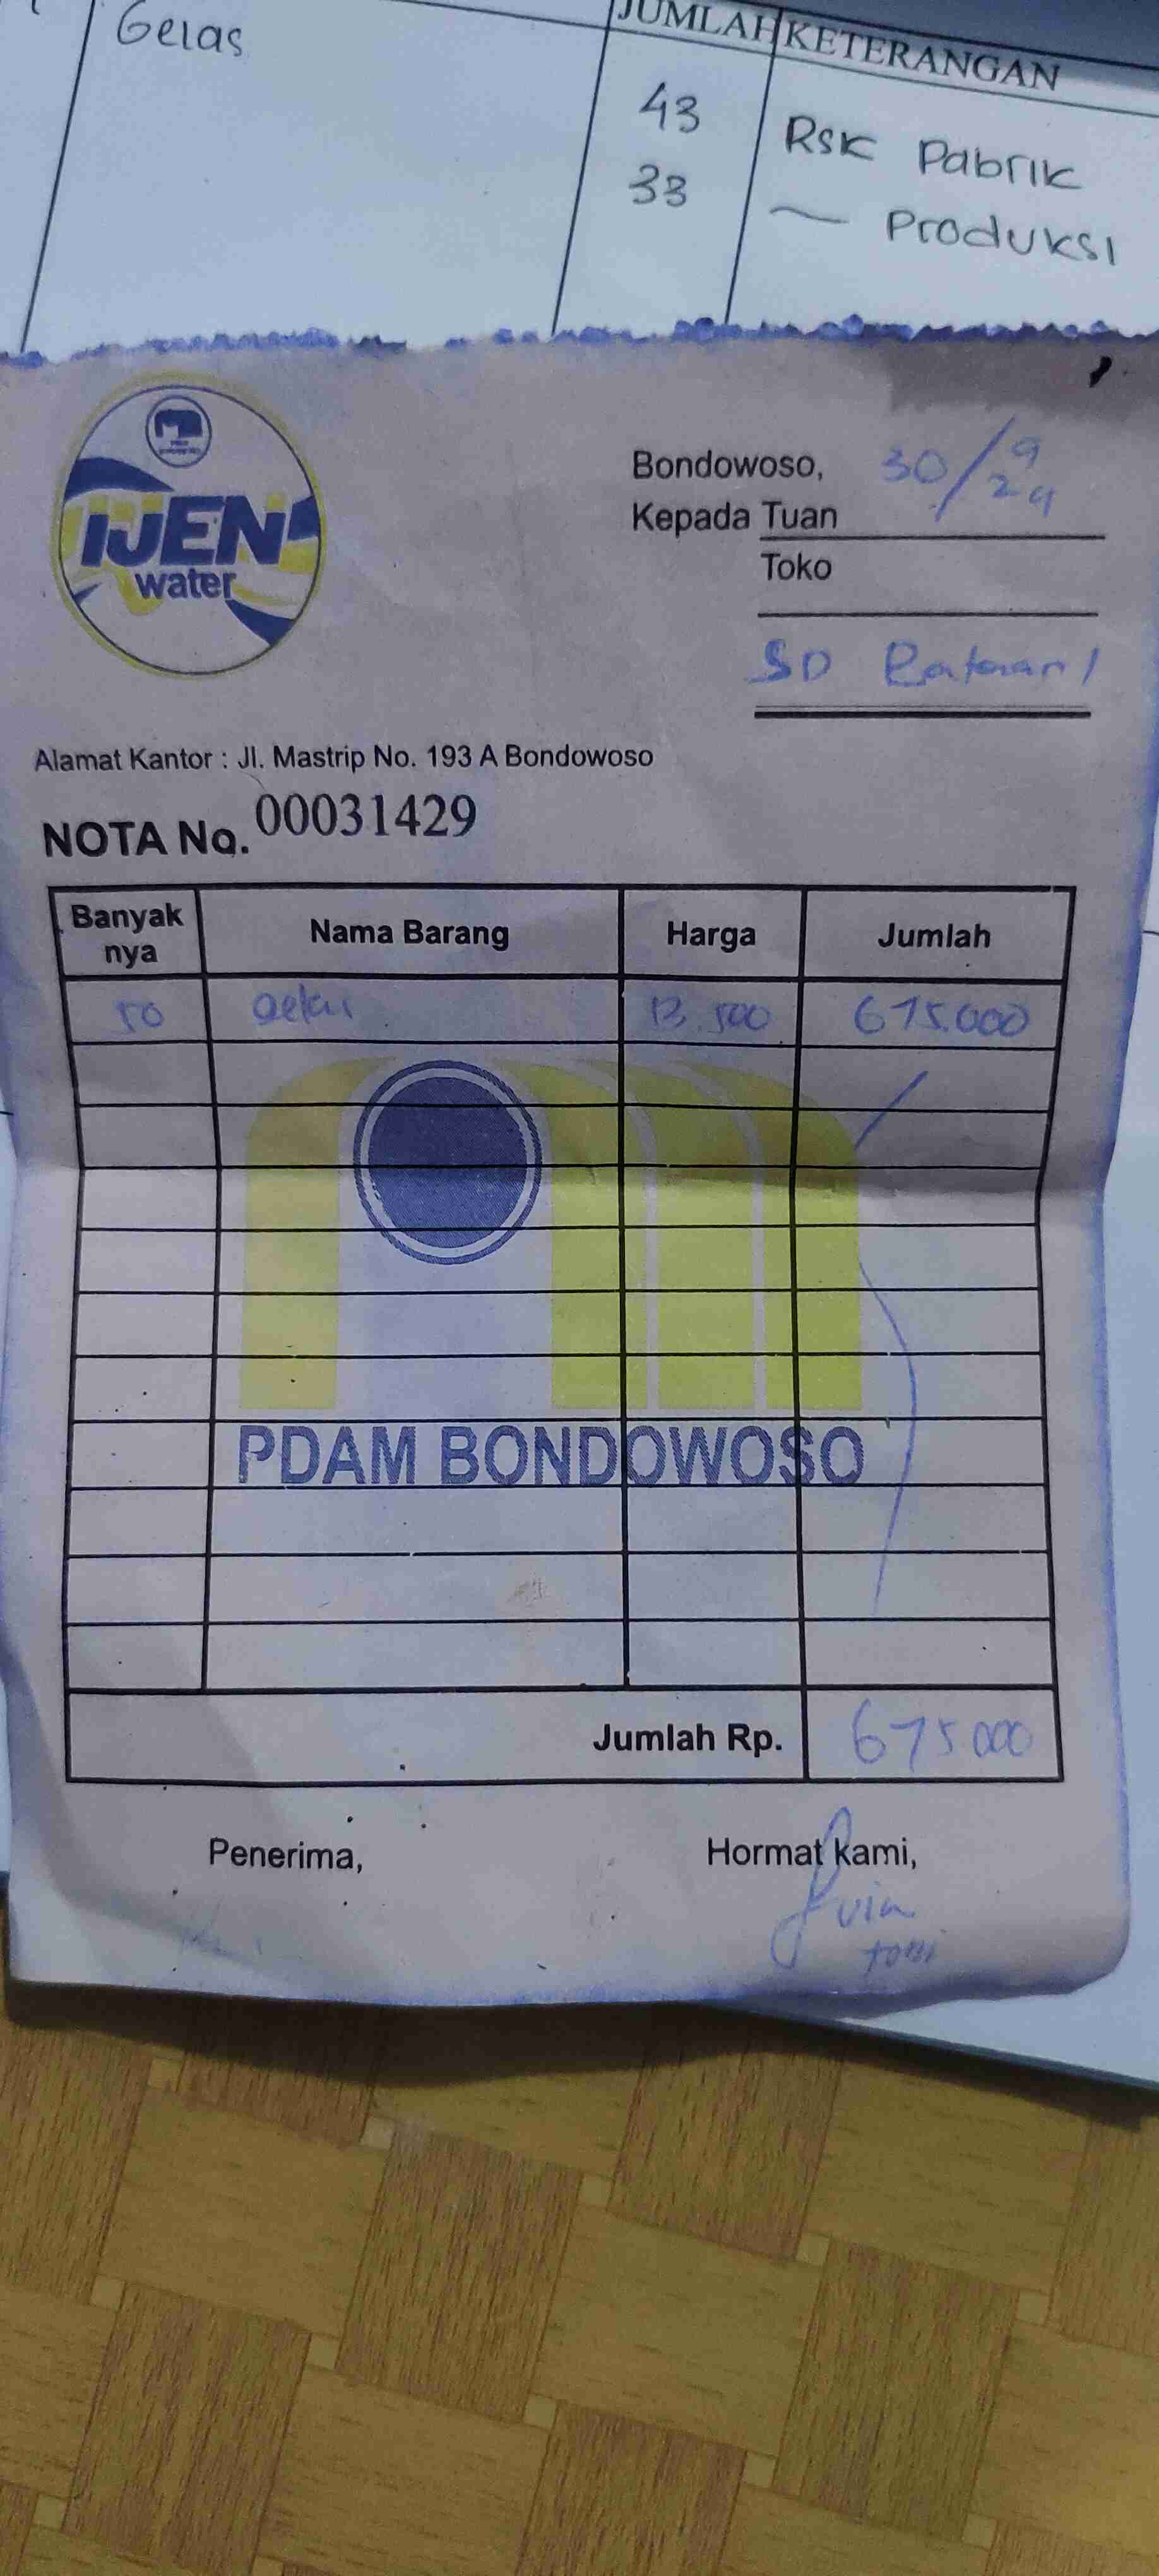 Gelas
JUMLAH KETERANGAN
43 Rsk Pabrik
33 Produksi
IJEN
water
Bondowoso, 30/9
24
Kepada Tuan
Toko
SD 1
Alamat Kantor : Jl. Mastrip No. 193 A Bondowoso
NOTA No. 00031429
Banyak nya Nama Barang Harga Jumlah
50 Gelas 13.500 675.000
PDAM BONDOWOSO
Jumlah Rp. 675000
Penerima, Hormat kami,